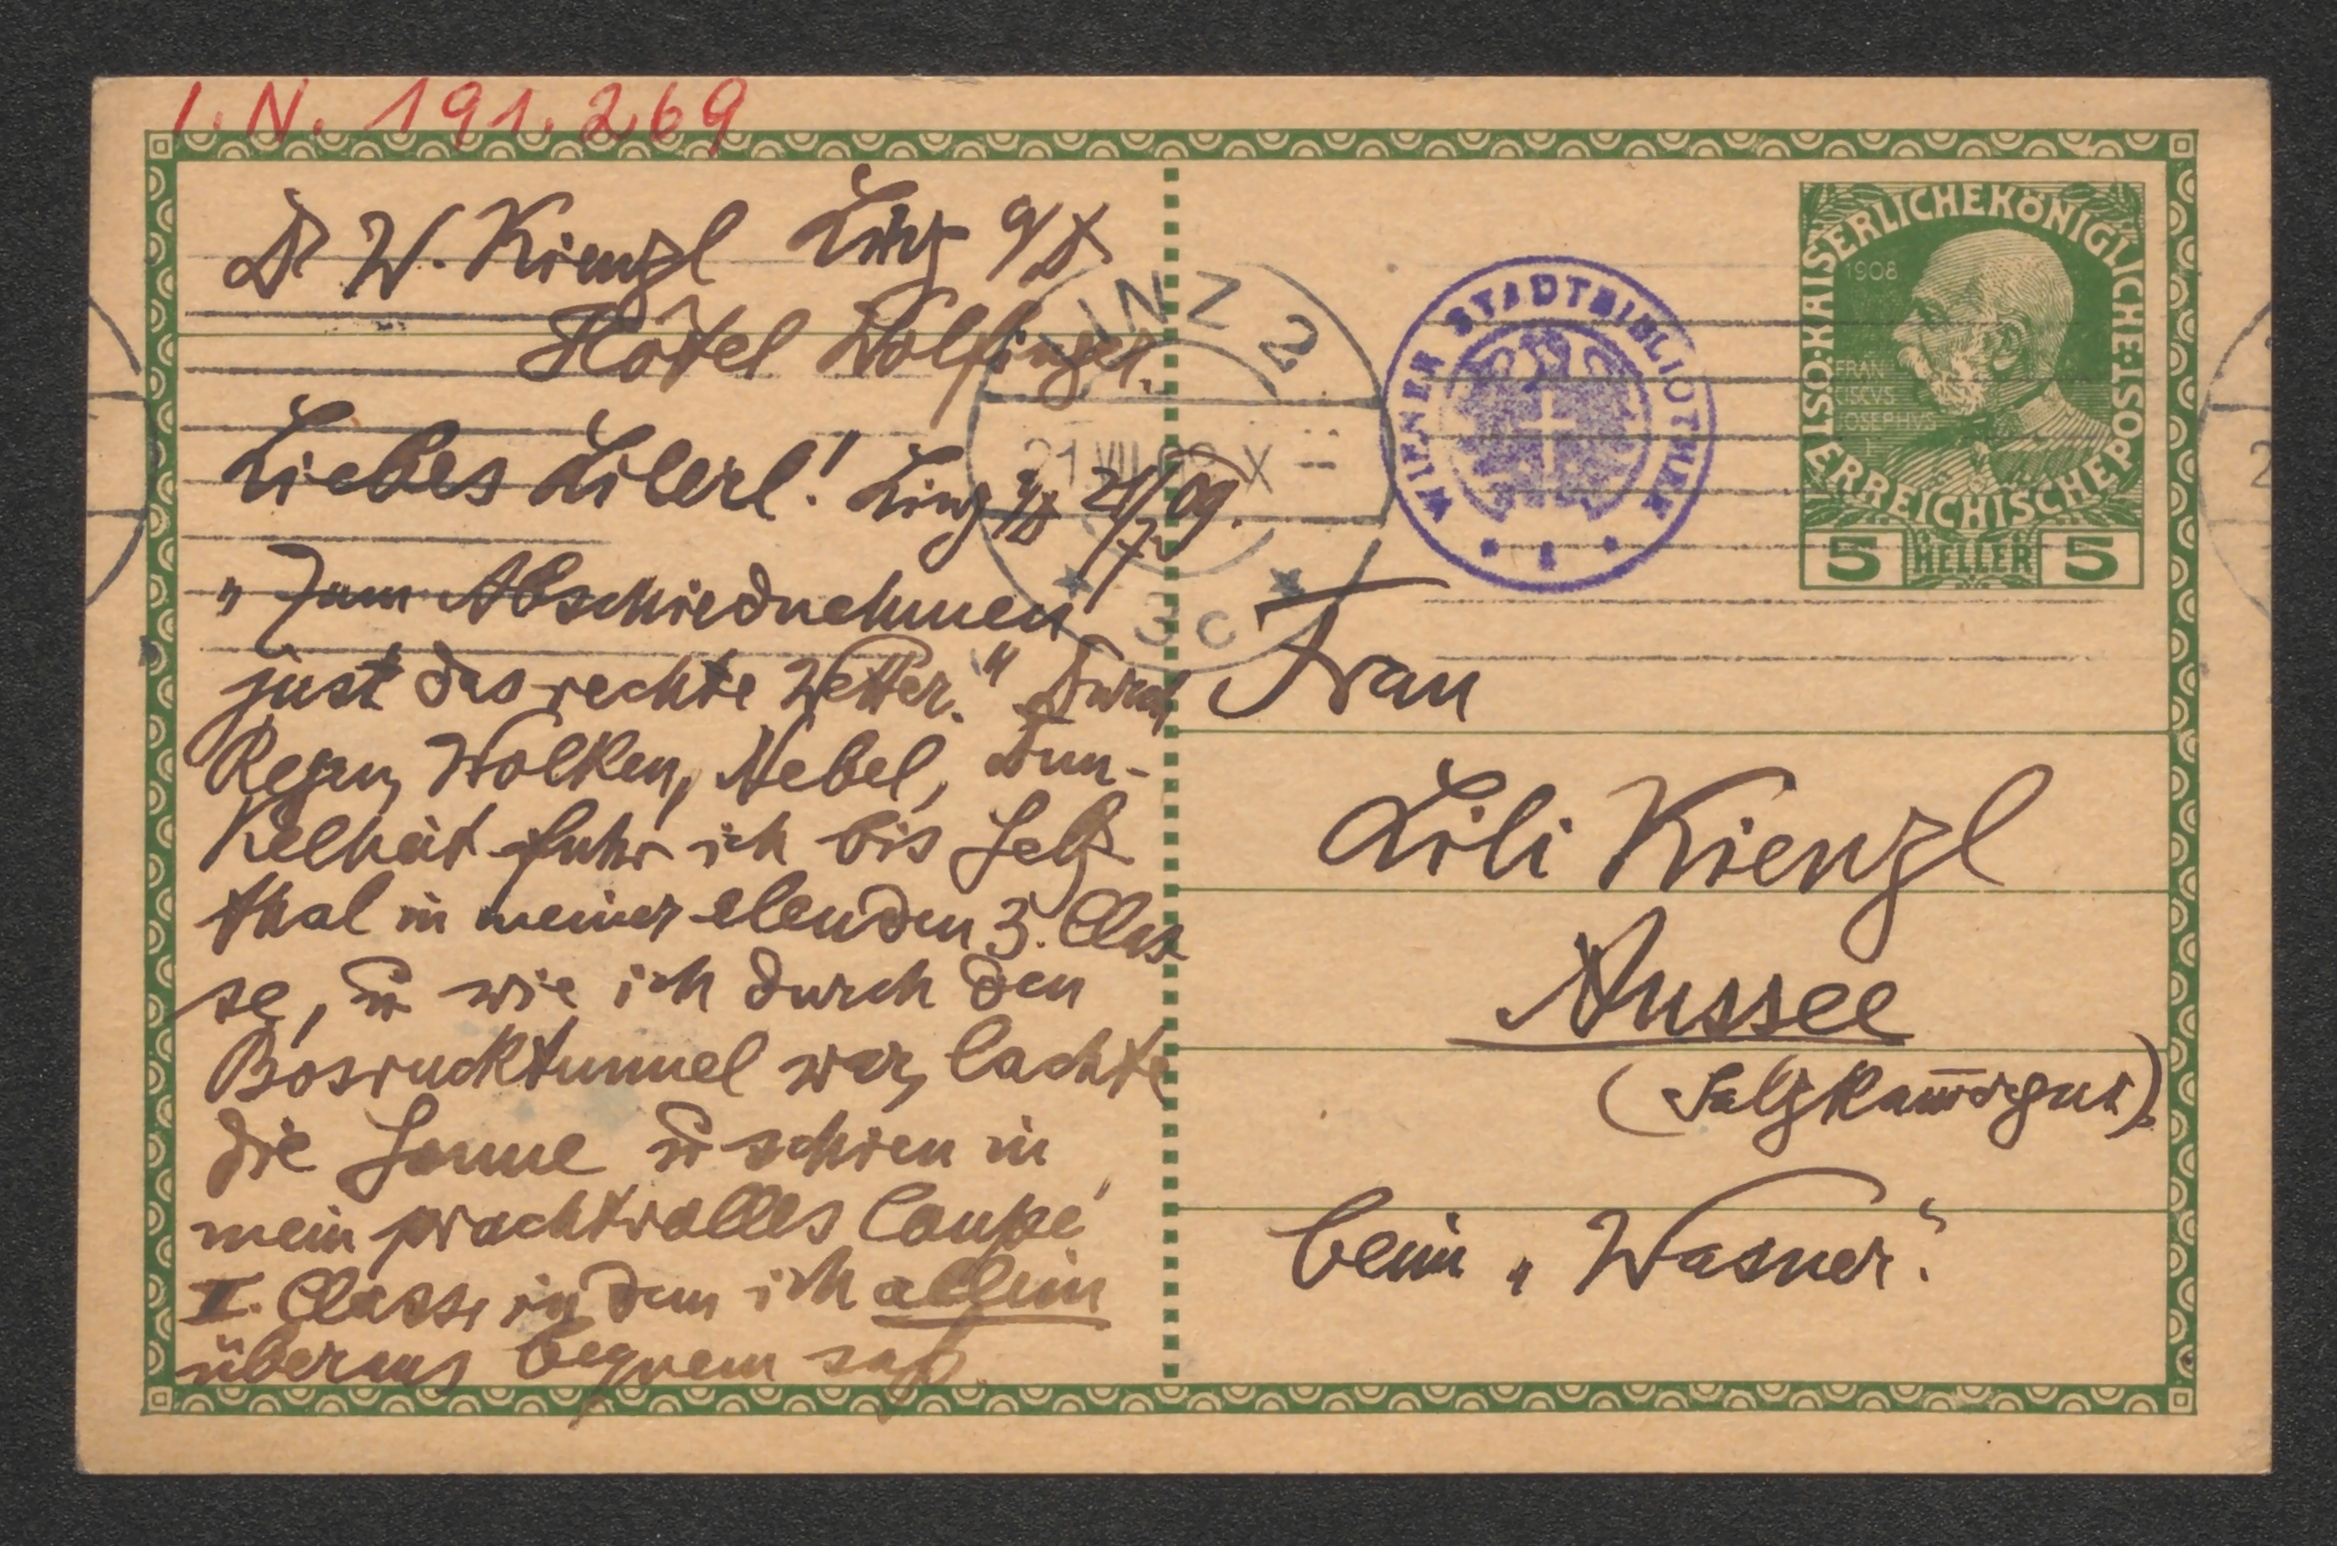 I. N. 191.269
Dr W. Kienzl Linz a/D
Hôtel Wolfinger.
Liebes Lilerl! Linz a/D 21/7 09.
"Zum Abschiednehmen
just das rechte Wetter." Durch
Regen, Wolken, Nebel, Dun-
kelheit fuhr ich bis Selz-
thal in meiner elenden 3. Clas
se, u wie ich durch den
Bosrucktunnel war, lachte
die Sonne u schien in
mein prachtvolles Coupé
II. Classe in dem ich allein
überaus bequem saß.
LINZ 2
21 VII 09 X
3c
WIENER STADTBIBLIOTHEK
KAISERLICHEKÖNIGLICHE
ÖSTERREICHISCHEPOST
1908
FRAN
CISCVS
JOSEPHVS
5 HELLER 5
Frau
Lili Kienzl
Aussee
(Salzkam̅ergut).
beim "Wasner".